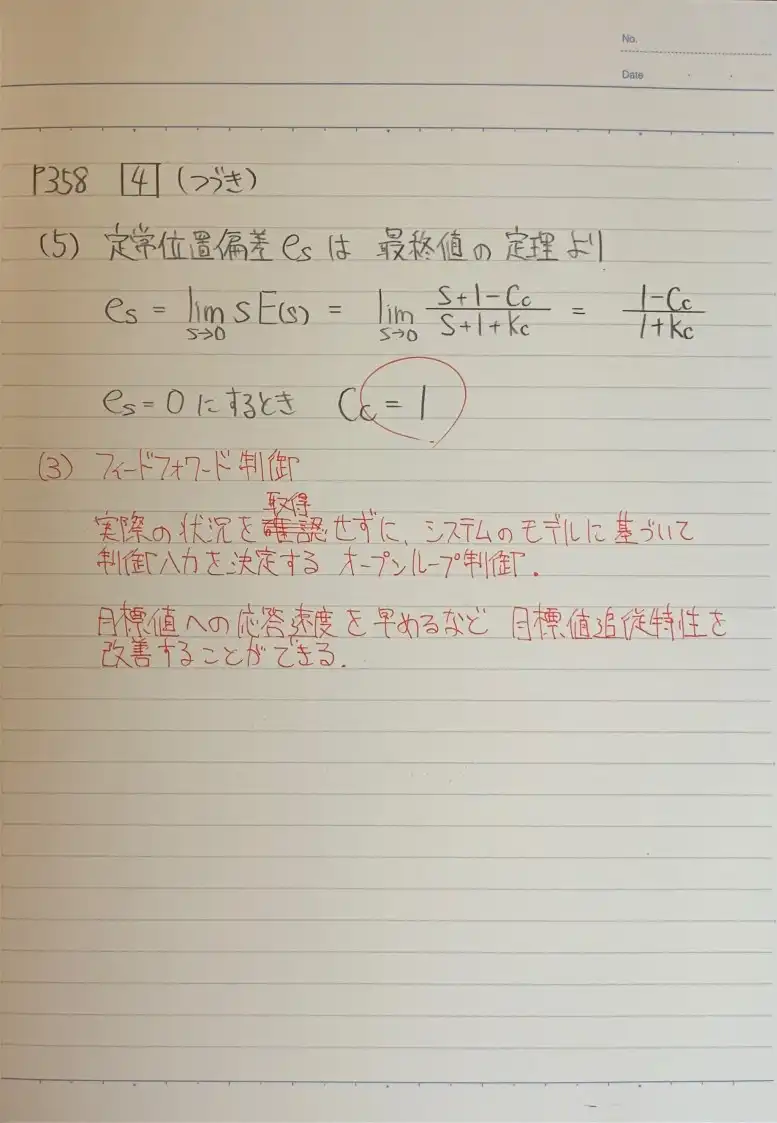 No.
Date
P358 4 (つづき)
(5) 定常位置偏差 es は 最終値の定理より
es = lim s→0 sE(s) = lim s→0 (s+1-Cc)/(s+1+kc) = (1-Cc)/(1+kc)
es = 0 にするとき Cc = 1
(3) フィードフォワード制御
取得
実際の状況を確認せずに、システムのモデルに基づいて
制御入力を決定する オープンループ制御.
目標値への応答速度を早めるなど 目標値追従特性を
改善することができる.